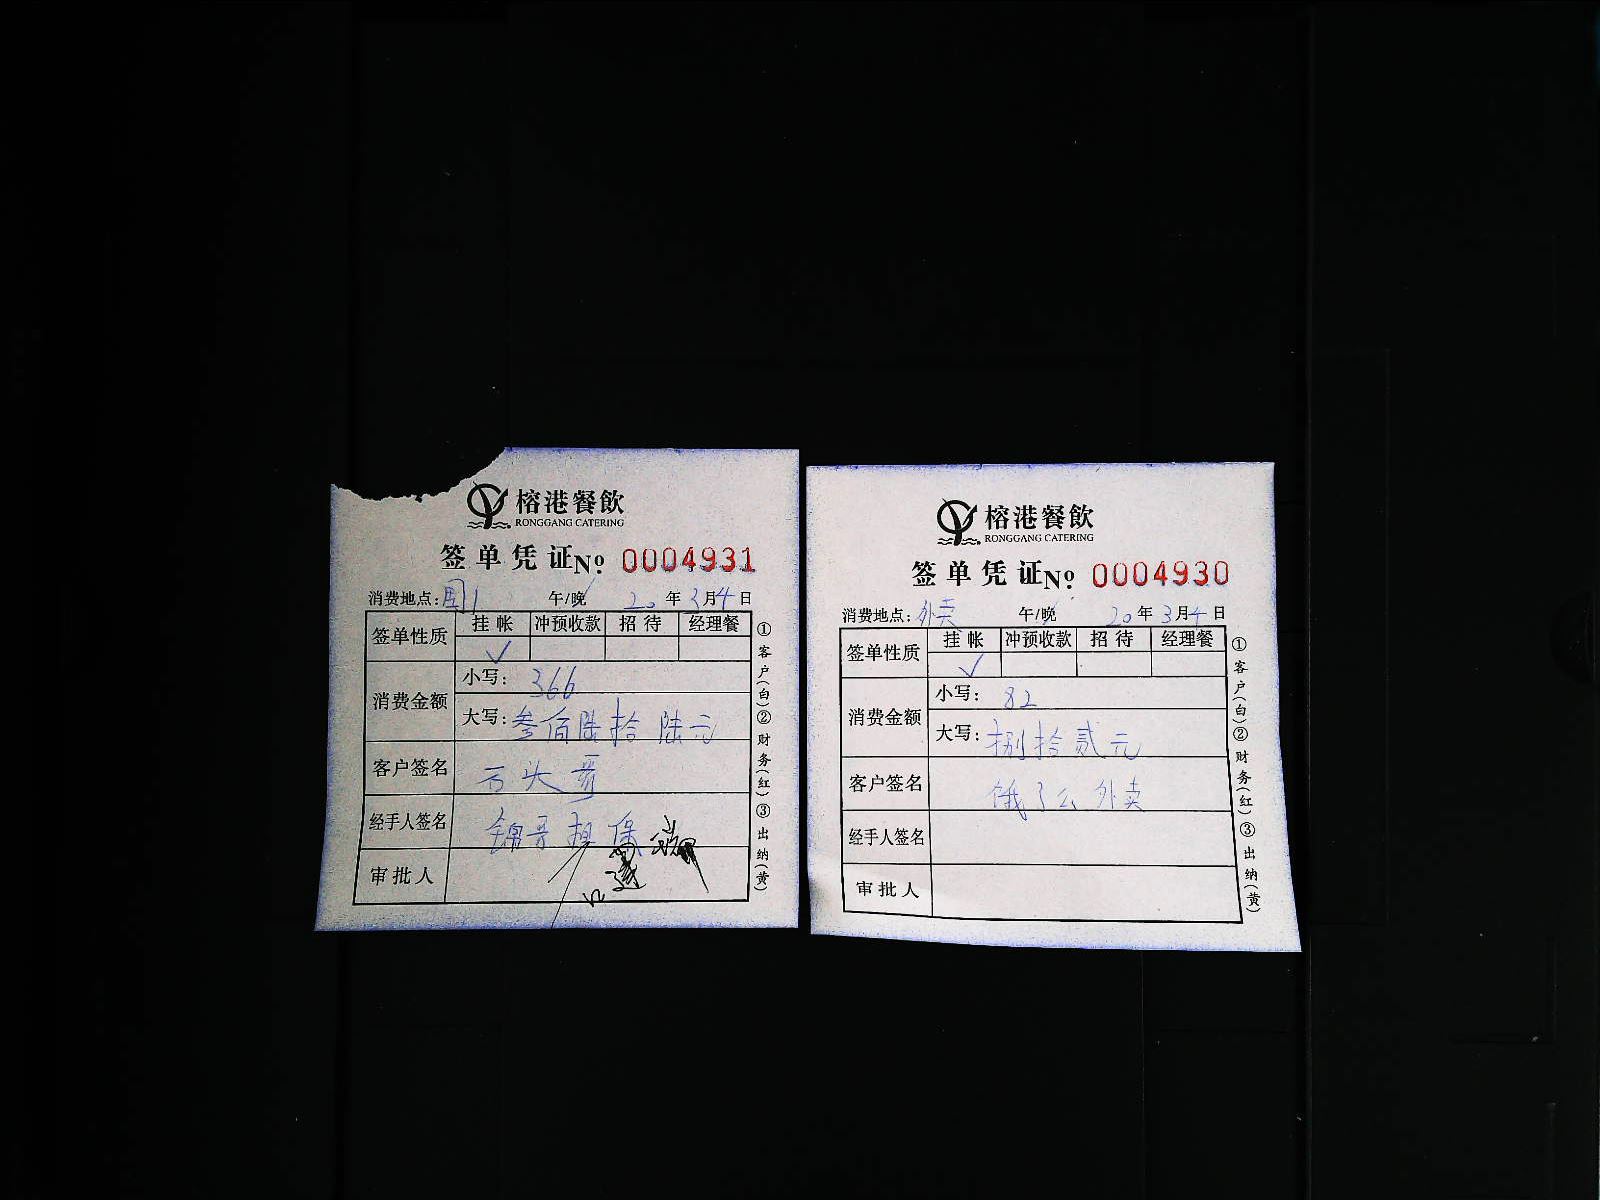 榕港餐飲
RONGGANG CATERING
签单凭证 No 0004931
消费地点: 午/晚 20年3月4日
签单性质 挂帐 冲预收款 招待 经理餐
√
消费金额 小写: 366
大写: 叁佰陆拾陆元
客户签名 石头哥
经手人签名 锦哥担保
审批人
①客户(白)②财务(红)③出纳(黄)
榕港餐飲
RONGGANG CATERING
签单凭证 No 0004930
消费地点: 外卖 午/晚 20年3月4日
签单性质 挂帐 冲预收款 招待 经理餐
√
消费金额 小写: 82
大写: 捌拾贰元
客户签名 饿了么外卖
经手人签名
审批人
①客户(白)②财务(红)③出纳(黄)